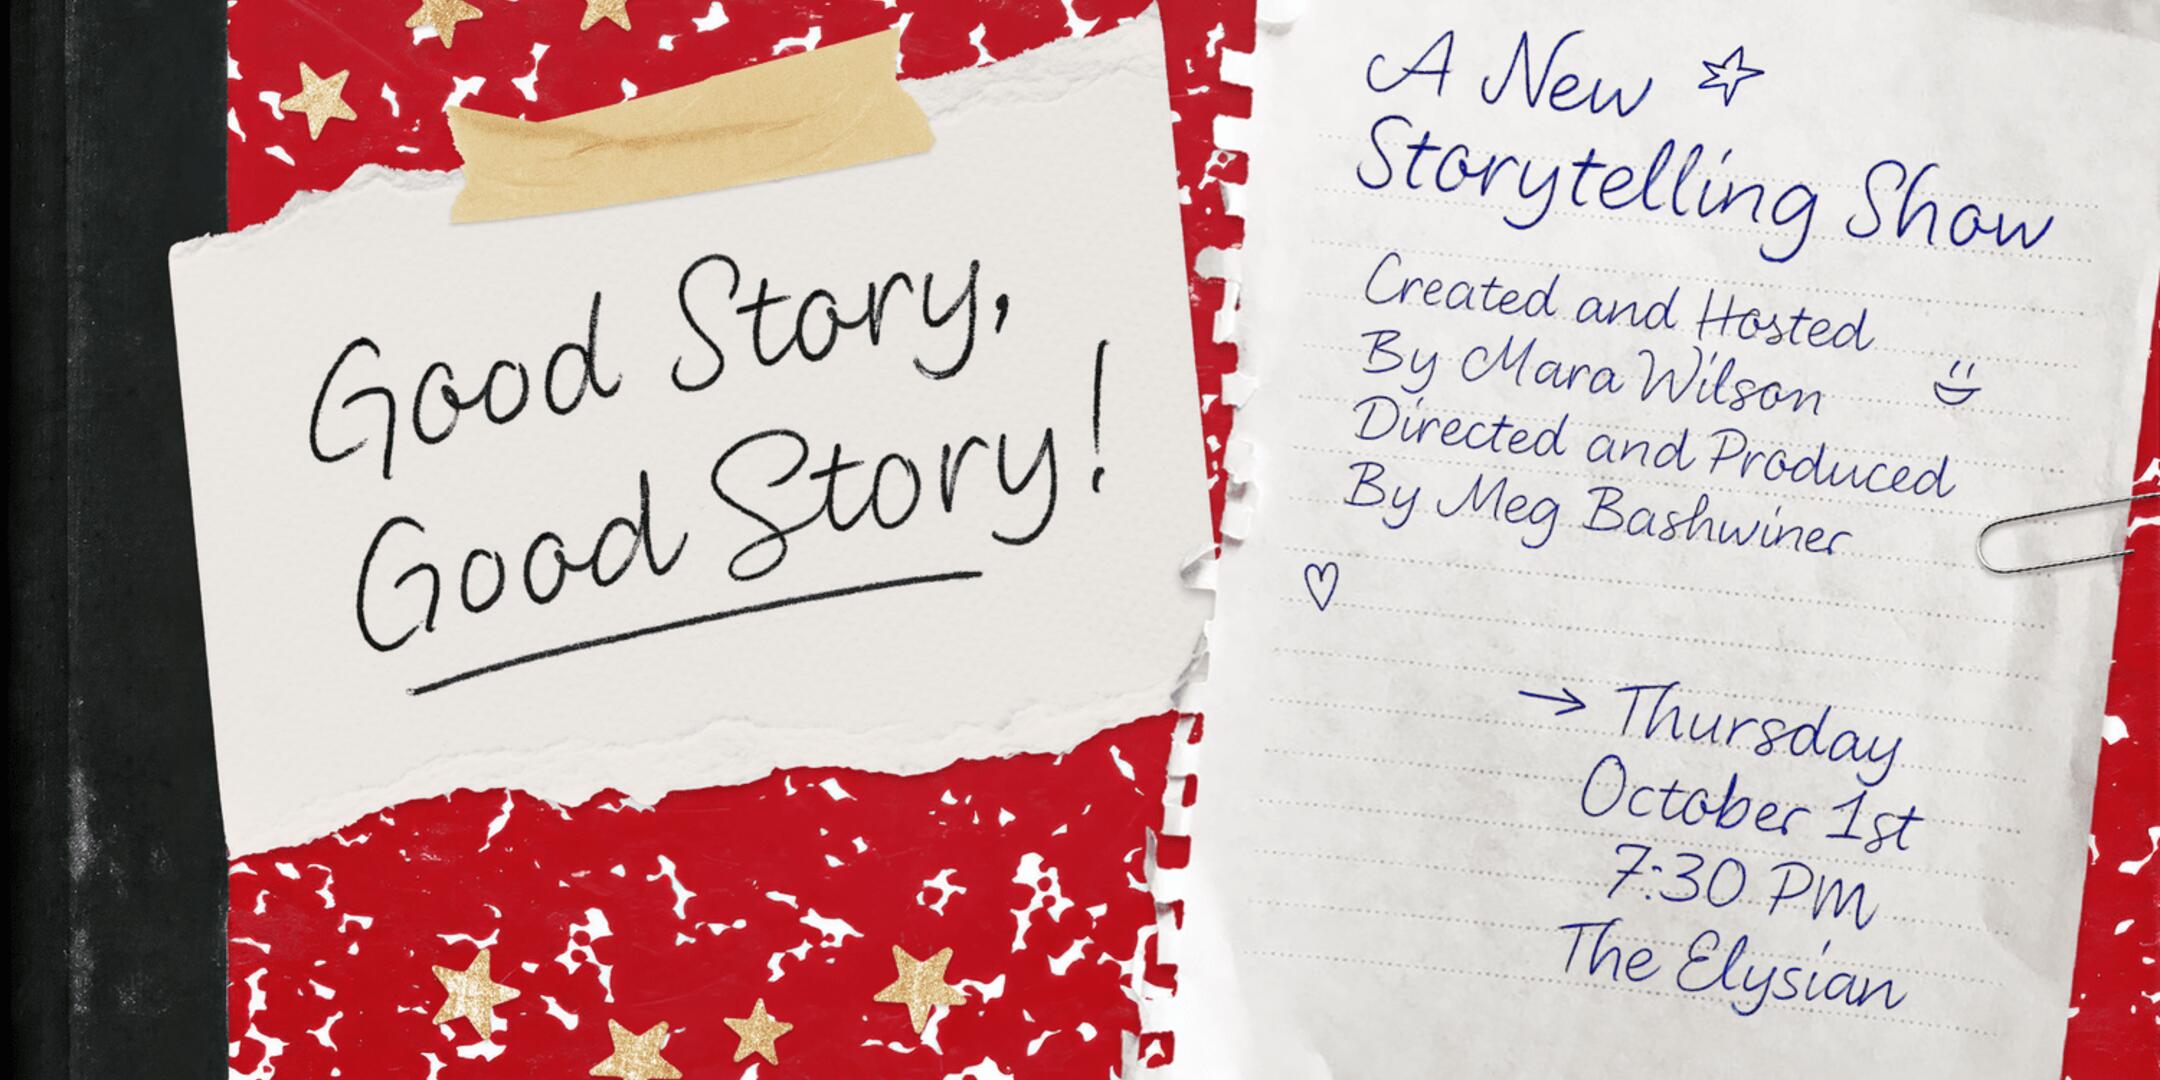 Good Story,
Good Story!
A New
Storytelling Show
Created and Hosted
By Mara Wilson
Directed and Produced
By Meg Bashwiner
Thursday
October 1st
7:30 PM
The Elysian